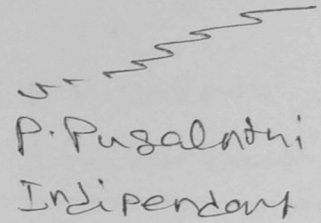 P. Pugalnthi
Indipendant